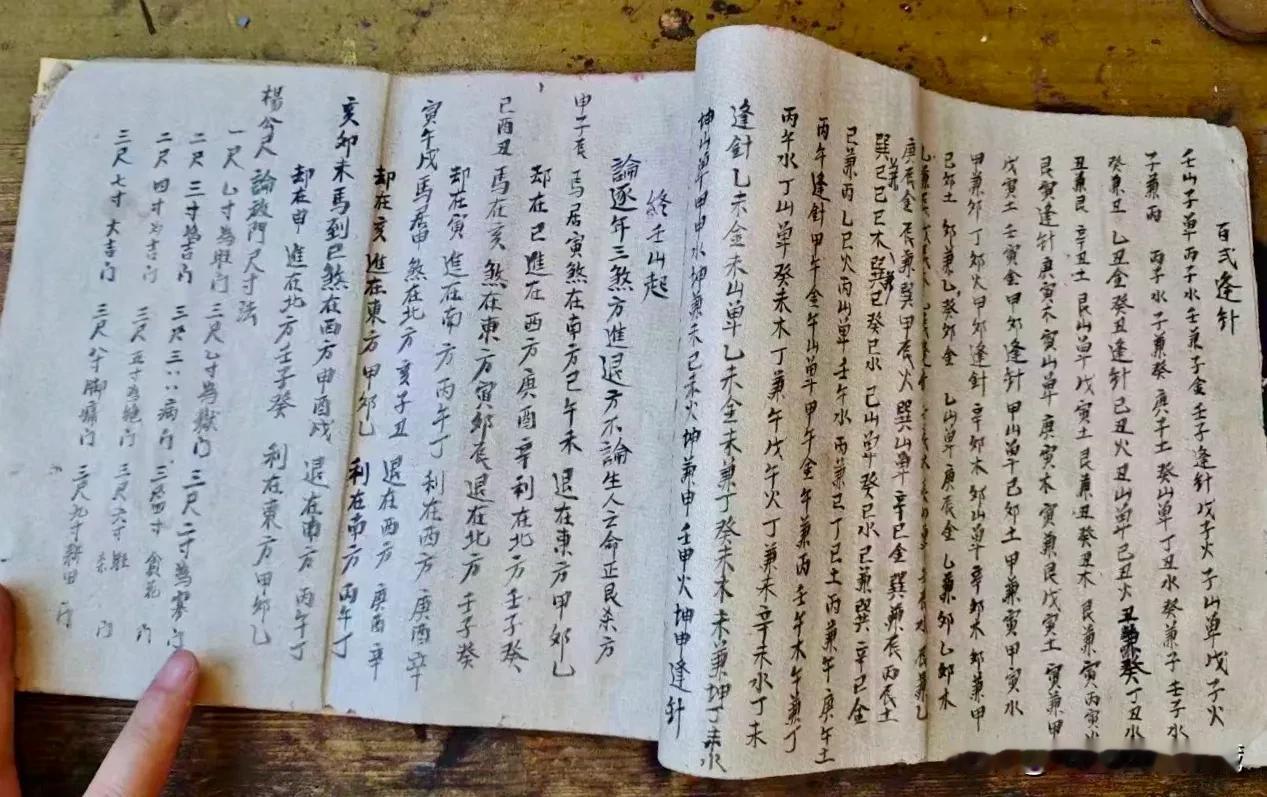 百弍逢针
壬山子單丙子水壬兼子金壬子逢针戊子火子山單戊子火
子兼丙 丙子水子兼癸庚子土癸山單丁丑水癸兼子壬子水
癸兼丑乙丑金癸丑逢针己丑火丑山單己丑火丑兼癸丁丑水
丑兼艮辛丑土艮山單戊寅土艮兼丑癸丑木艮兼寅丙寅火
艮寅逢针庚寅木寅山單庚寅木寅兼艮戊寅土寅兼甲
戊寅土壬寅金甲卯逢针甲山單己卯土甲兼寅甲寅水
甲兼卯丁卯火甲卯逢针辛卯木卯山單辛卯木卯兼甲
己卯土卯兼乙癸卯金乙山單庚辰金乙兼卯乙卯水
庚辰金辰兼巽甲辰火巽山單辛巳金巽兼辰丙辰土
巽兼巳己巳木巽巳癸巳水巳山單癸巳水巳兼巽辛巳金
巳兼丙乙巳火丙山單壬午水丙兼巳丁巳土丙兼午庚午土
丙午逢针甲午金午山單甲午金午兼丙壬午木午兼丁
丙午水丁山單癸未木丁兼午戊午火丁兼未辛未水丁未
逢針乙未金未山單乙未金未兼丁癸未木未兼坤丁未水
坤山單甲申水坤兼未己未火坤兼申壬申火坤申逢针
終壬山起
論逐年三煞方進退方不論生人云命正艮杀方
申子辰馬居寅煞在南方巳午未退在東方甲卯乙
却在巳進在西方庚酉辛利在北方壬子癸
巳酉丑馬在亥煞在東方寅卯辰退在北方壬子癸
却在寅進在南方丙午丁利在西方庚酉辛
寅午戌馬居申煞在北方亥子丑退在西方庚酉辛
却在亥進在東方甲卯乙利在南方丙午丁
亥卯未馬到巳煞在西方申酉戌退在南方丙午丁
却在申進在北方壬子癸利在東方甲卯乙
楊公尺論放門尺寸法
一尺乙寸為旺门三尺乙寸為獄门
二尺三寸為吉门三尺二寸為寡门
二尺四寸为吉门三尺三八病门三尺四寸貪花门
三尺七寸大吉门三尺五寸為绝门三尺六寸 杀门
三尺八寸脚痛门三尺九寸耕田门